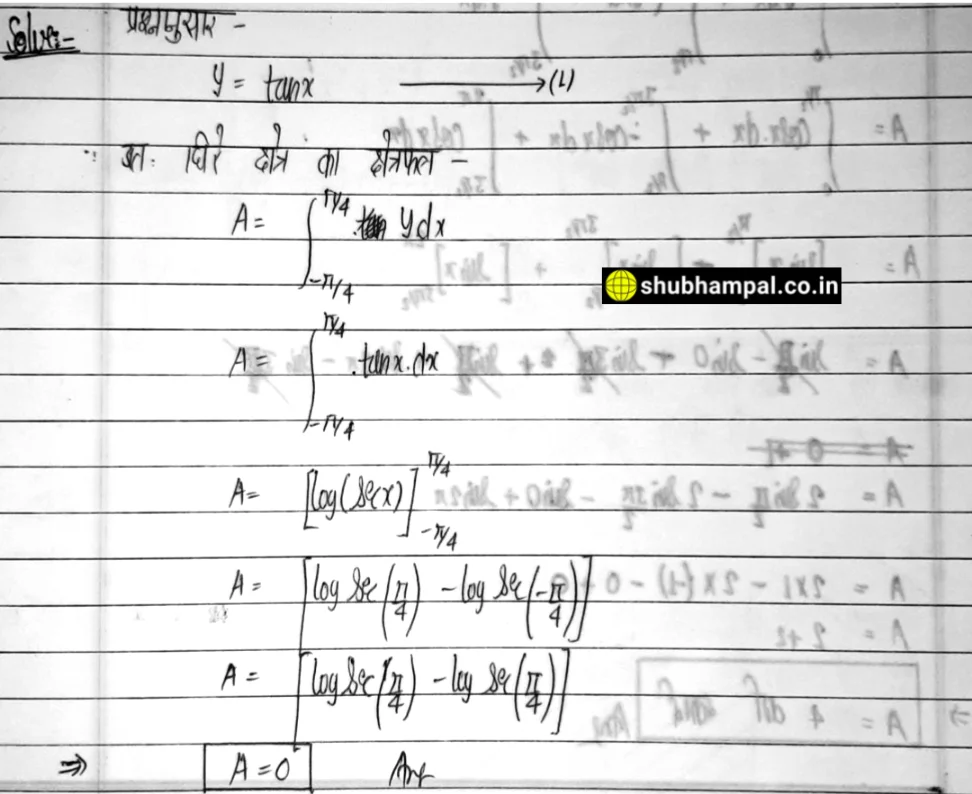 Solve:- प्रश्नानुसार -
y = tanx ⟶ (1)
∵ अतः घिरे क्षेत्र का क्षेत्रफल -
A = ∫_{-π/4}^{π/4} y dx
shubhampal.co.in
A = ∫_{-π/4}^{π/4} . tanx . dx
A = [log(Sec x)]_{-π/4}^{π/4}
A = [log Sec(π/4) - log Sec(-π/4)]
A = [log Sec(π/4) - log Sec(π/4)]
⇒ A = 0 Ans